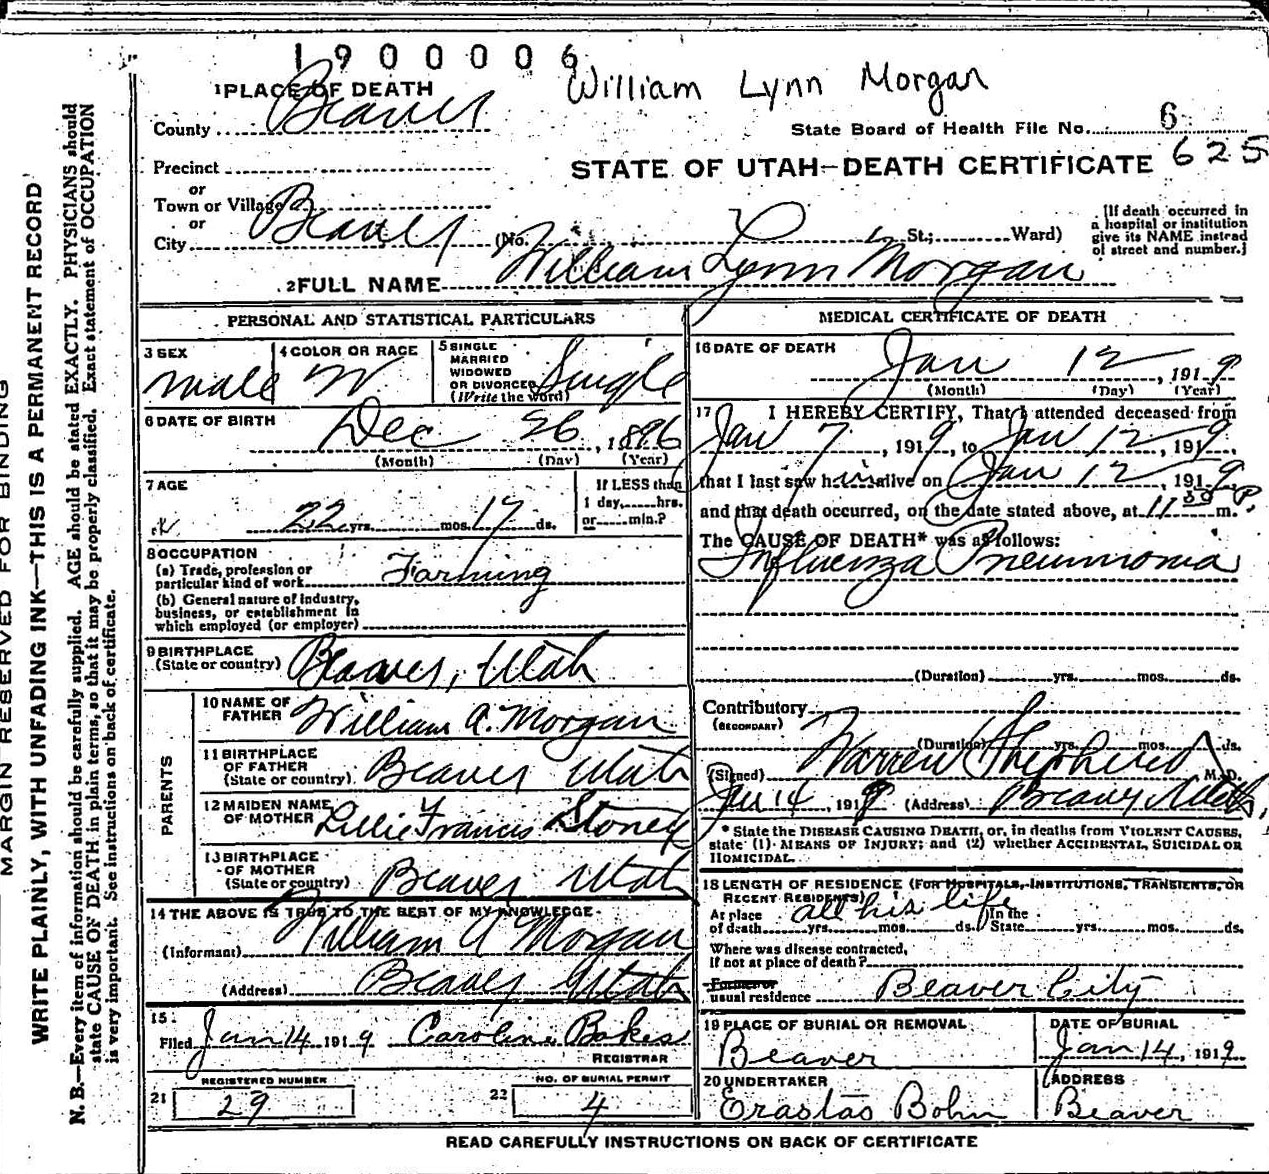 1 9 0 0 0 0 6
William Lynn Morgan
1 PLACE OF DEATH
County Beaver
State Board of Health File No. 6
625
Precinct
or
Town or Village
or
City Beaver (No. St.; Ward)
STATE OF UTAH—DEATH CERTIFICATE
[If death occurred in
a hospital or institution
give its NAME instead
of street and number.]
2 FULL NAME William Lynn Morgan
PERSONAL AND STATISTICAL PARTICULARS
3 SEX
male
4 COLOR OR RACE
W
5 SINGLE
MARRIED
WIDOWED
OR DIVORCED
(Write the word)
Single
6 DATE OF BIRTH
Dec 26, 1896
(Month) (Day) (Year)
7 AGE
22 yrs. mos. 17 ds.
If LESS than
1 day, hrs.
or min.?
8 OCCUPATION
(a) Trade, profession or
particular kind of work Farming
(b) General nature of industry,
business, or establishment in
which employed (or employer)
9 BIRTHPLACE
(State or country) Beaver, Utah
PARENTS
10 NAME OF
FATHER William A. Morgan
11 BIRTHPLACE
OF FATHER
(State or country) Beaver Utah
12 MAIDEN NAME
OF MOTHER Lillie Francis Stoney
13 BIRTHPLACE
OF MOTHER
(State or country) Beaver Utah
14 THE ABOVE IS TRUE TO THE BEST OF MY KNOWLEDGE
(Informant) William A Morgan
(Address) Beaver Utah
15
Filed Jan 14 1919 Caroline Bakes
REGISTRAR
REGISTERED NUMBER
21 29
NO. OF BURIAL PERMIT
22 4
MEDICAL CERTIFICATE OF DEATH
16 DATE OF DEATH
Jan 12, 1919
(Month) (Day) (Year)
17 I HEREBY CERTIFY, That I attended deceased from
Jan 7, 1919, to Jan 12, 1919,
that I last saw him alive on Jan 12, 1919,
and that death occurred, on the date stated above, at 11 30 P m.
The CAUSE OF DEATH* was as follows:
Influenza Pneumonia
(Duration) yrs. mos. ds.
Contributory
(SECONDARY)
(Duration) yrs. mos. ds.
(Signed) Warren Shepherd M.D.
Jan 14, 1919 (Address) Beaver Utah
* State the DISEASE CAUSING DEATH, or, in deaths from VIOLENT CAUSES,
state (1) MEANS OF INJURY; and (2) whether ACCIDENTAL, SUICIDAL OR
HOMICIDAL.
18 LENGTH OF RESIDENCE (FOR HOSPITALS, INSTITUTIONS, TRANSIENTS, OR
RECENT RESIDENTS)
all his life
At place In the
of death yrs. mos. ds. State yrs. mos. ds.
Where was disease contracted,
If not at place of death?
Former or
usual residence Beaver City
19 PLACE OF BURIAL OR REMOVAL
Beaver
DATE OF BURIAL
Jan 14, 1919
20 UNDERTAKER
Erastas Bohn
ADDRESS
Beaver
READ CAREFULLY INSTRUCTIONS ON BACK OF CERTIFICATE
MARGIN RESERVED FOR BINDING
WRITE PLAINLY, WITH UNFADING INK—THIS IS A PERMANENT RECORD
N. B.—Every item of information should be carefully supplied. AGE should be stated EXACTLY. PHYSICIANS should
state CAUSE OF DEATH in plain terms, so that it may be properly classified. Exact statement of OCCUPATION
is very important. See instructions on back of certificate.